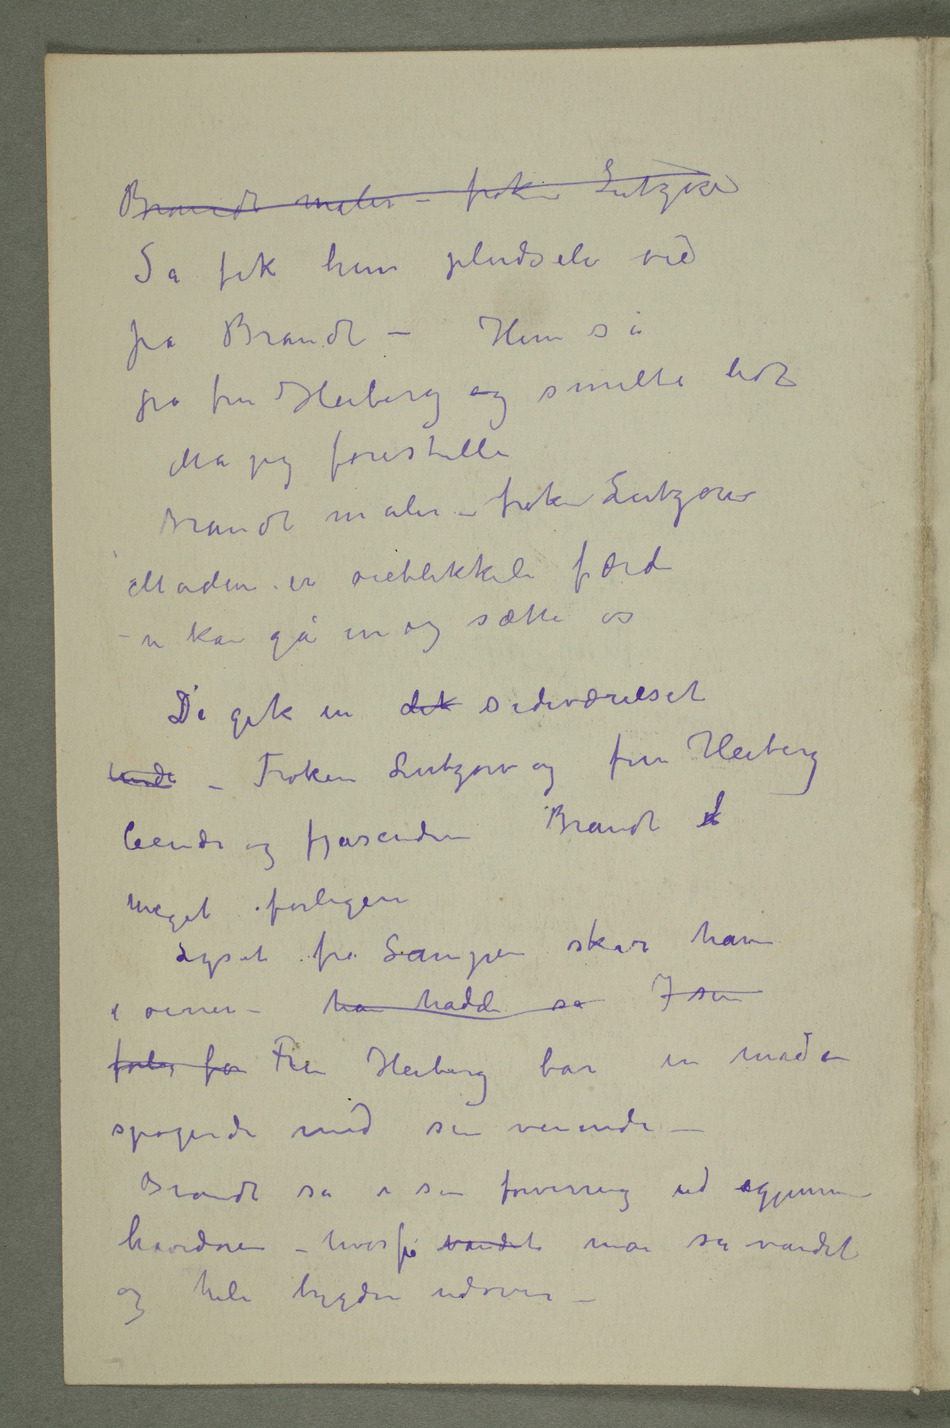 Brandt maler – frøken Lützow
Så fik hun pludselig øie
på Brandt – Hun så
på fru Heiberg og smilte lidt
Må jeg forestille
Brandt maler – frøken Lützow
Maden er øieblikkeli færdi
– vi kan gå in og sætte os
Di gik in det sideværelset
hende – Frøken Lützow og fru Heiberg
leende og fjasenden Brandt
meget forlegen
Lyset fra Lampen skar ham
i øinen – han hadde så I sin
forleg for Fru Heiberg bar in maden
spøgende med sin veninde –
Brandt så i sin forvirring ud igjennem
havedøren – hvorfra vandet man så vandet
og hele bygden udover –